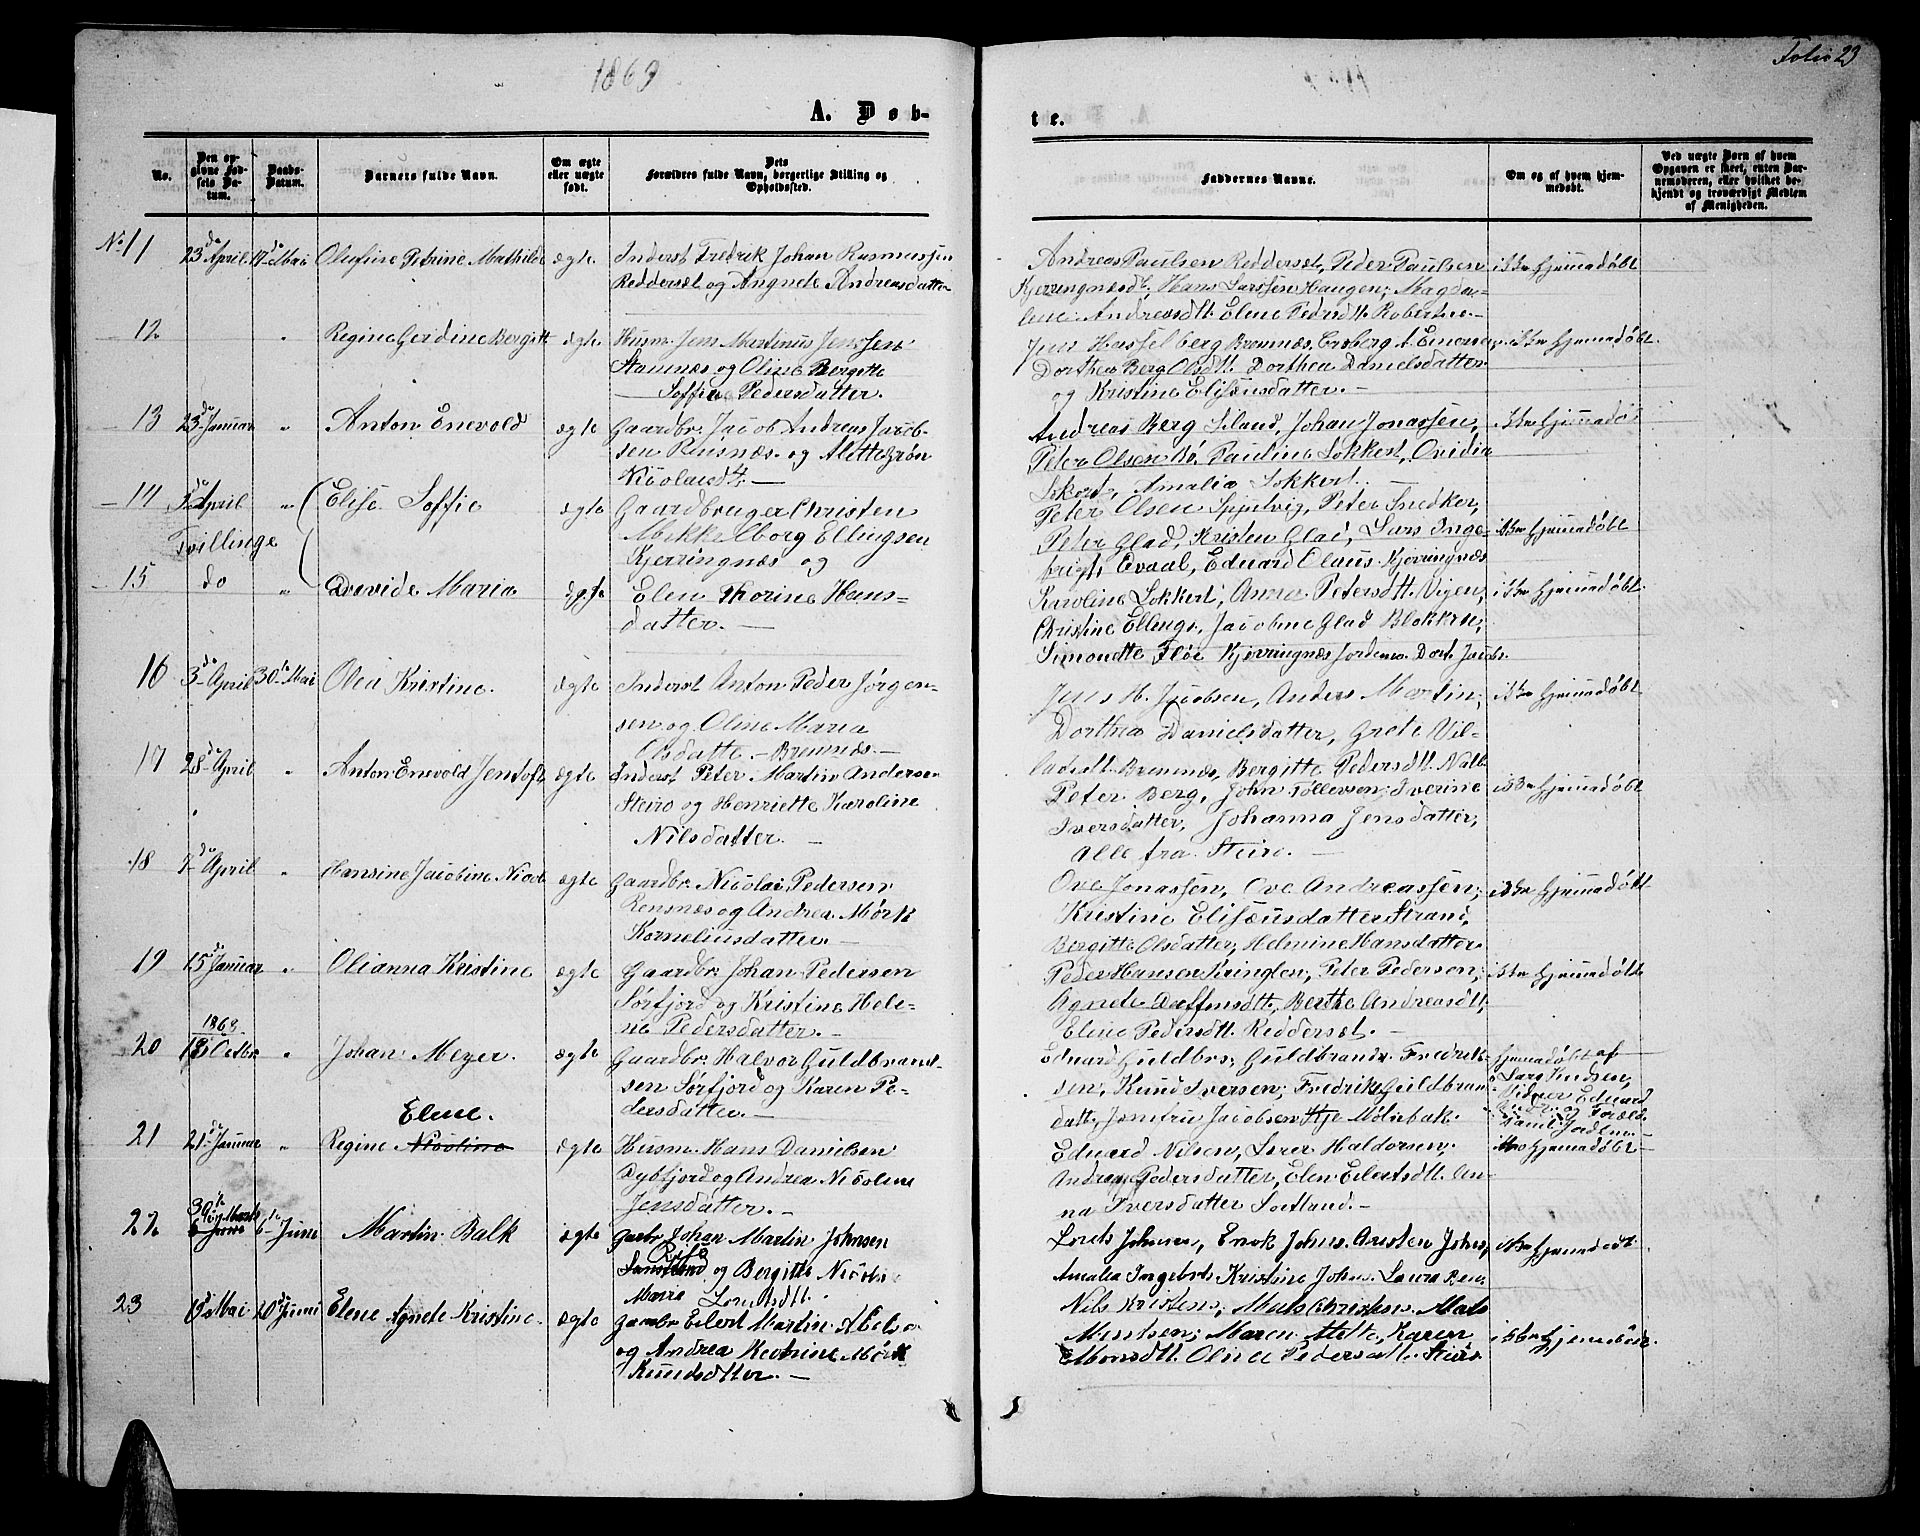 1869
Folio 23
A. Døb-
te.
No.
Den op-
givne Fød-
sels Da-
tum.
Daabs-
Datum.
Barnets fulde Navn.
Om ægte
eller uægte
født.
Dets
Forældres fulde Navn, borgerlige Stilling og
Opholdssted.
Faddernes Navne.
Om og af hvem hjem-
medøbt.
Ved uægte Børn af hvem
Opgaven er skeet, enten Bar-
nemoderen, eller hvilket be-
kjendt og troværdigt Medlem
af Menigheden.
No. 11
23de April
17de Mai
Olufine Petrine Mathilde
ægte
Inderst Fredrik Johan Rasmussen
Reddersæt og Angnete Andreasdatter
Andreas Paulsen Reddersæt, Peder Paulsen
Kjerringnæsdt, Hans Larssen Haugen; Magda-
lene Andreasdtt. Elene Pedersdtt.
ikke Hjemmedøbt
12
"
Regine Gerdine Bergitt
ægte
Husm. Jens Martinus Jenssen
Stamnæs og Oline Bergitte
Soffie Pedersdatter.
Jens Hasselberg Bremnæs,
Dorthea Berg Olsdtt. Dorthea Danielsdatter
og Kristine Elisæusdatter. —
ikke Hjemmedøbt.
13
23de Januar
"
Anton Enevold
ægte
Gaardbr. Jacob Andreas Jacob-
sen Reisnæs og Alette Grøn
Nicolaisdt. —
Andreas Berg Seland, Johan Jonassen,
Peter Olsen Bø, Pauline Lokkert, Ovidia
Lokert, Amalia Lokkert.
ikke Hjemmedøbt
14
April
"
Elise Soffie
ægte
Gaardbruger Christen
Mekkelborg Ellingsen
Kjerringnæs og
Peter Olsen Spjutvig, Peter Snedker,
Peter Glad, Kristen Glad, Lars Inge-
brigt. Evaal, Eduard Olaus Kjerringnæs
ikke Hjemmedøbt
Tvillinge
15
do
"
Maria
ægte
Elen Thorine Hans-
datter. —
Karoline Lokkert, Anna Petersdtt. Vigen,
Christine Ellings, Jacobine Glad Blokken,
Simonette Fløe Kjerringnæs Jordem. Dort. Jacobs.
ikke Hjemmedøbt.
16
3de April
30te Mai
Olea Kristine.
ægte
Inderst Anton Peder Jørgen-
sen og Oline Maria
Olsdatte. — Bremnæs. —
Jens H. Jacobsen, Anders Martin,
Dorthea Danielsdatter, Grete Vil-
ladsdtt. Bremnæs, Bergitte Pedersdtt.
ikke Hjemmedøbt
17
28de April
"
Anton Enevold Jentoft
ægte
Inderst Peter Martin Andersen
Steiro og Henriette Karoline
Nilsdatter. —
Peter Berg, John Tollevsen, Iverine
Iversdatter, Johanna Jensdatter,
alle fra Steiro. —
ikke Hjemmedøbt
18
7de April
"
Hansine Jacobine Nicol
ægte
Gaardbr. Nicolai Pedersen
Rensnæs og Andrea Mørk
Korneliusdatter. —
Ove Jonassen, Ove Andreassen,
Kristine Elisæusdatter Strand,
Bergitte Olsdatter, Helmine Hansdatter
ikke Hjemmedøbt
19
15de Januar
"
Olianna Kristine
ægte
Gaardbr. Johan Pedersen
Sørfjord og Kristine Hele-
ne Pedersdatter. —
Peder Hansen Kringlen, Peter Pedersen,
Agnete Daffinsdtt, Berthe Andreasdtt,
Elene Pedersdtt. Reddersæt. —
ikke Hjemmedøbt
20
1868
Octbr
"
Johan Meyer.
ægte
Gaardbr. Halvor Guldbrand-
sen Sørfjord og Karen Pe-
dersdatter. —
Eduard Guldbrs; Guldbrands Fredrik-
sen, Knud Iversen; Fredrikke Guldbran
datt, Jomfru Jacobsen
Hjemmedøbt af
Lars Knudsen,
Vidner Eduard
21
21de Januar
"
Elene.
Regine Nicoline
ægte
Husm. Hans Danielsen
Dybfjord og Andrea Nicoline
Jensdatter. —
Eduard Nilsen, Sører Haldorsen.
Andrea Pedersdatter, Elen Eilertsdtt. An-
na Iversdatter Sortland. —
ikke Hjemmedøbt
22
30te Marts
6te Juni
Martin Balk
ægte
Gaardbr Johan Martin Johnsen
og Bergitte Nicoline
Marie Lorntsdtt.
Lornts Johnsen, Enok Johns. Kristen Johns,
Amalia Ingebrts. Kristine Johns. Laura
ikke Hjemmedøbt.
23
Mai
20de Juni
Elene Agnete Kristine.
ægte
Gaardbr Eilert Martin Abels
og Andrea Katrine Mørk
Knudsdtter. —
Nils Kristens, Mats Christens. Mats
Montsen; Maren Mette, Karen
Monsdtt. Olina Pedersdatt. Steiro
ikke Hjemmedøbt.